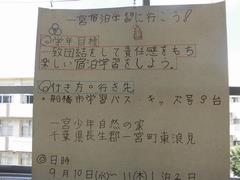 一宮宿泊学習に行こう!
◎学年目標
一致団結をして責任感をもち
楽しい宿泊学習をしよう。
◎行き方・行き先
・船橋市学習バス・キッズ号3台
一宮少年自然の家
千葉県長生郡一宮町東浪見
◎日時
9月10日(水)~11(木)1泊2日